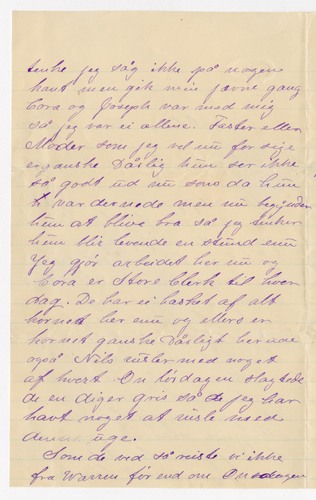 tenke jeg såg ikke på nogen
haut men gik min jævne gang
Cora og Joseph var med mig
så jeg var ei allene. Faster eller
Moder som jeg vel nu får sige
er ganske Dårlig hun ser ikke
så godt ud nu som da hun
var dernede men nu begynder
hun at blive bra så jeg tenker
hun blir levende en stund enu
Jeg gjør arbeidet her nu og
Cora er Store Clerk til hver
dag. De har ei høstet af alt
kornet her enu og ellers er
kornet ganske Dårligt her ude
også Nils rusler med noget
af hvert Onsdagen Slagtede
de en diger gris så de jeg har
havt noget at rusle med
denne uge.
Som de ved så reiste vi ikke
fra Warren før end om Onsdagen